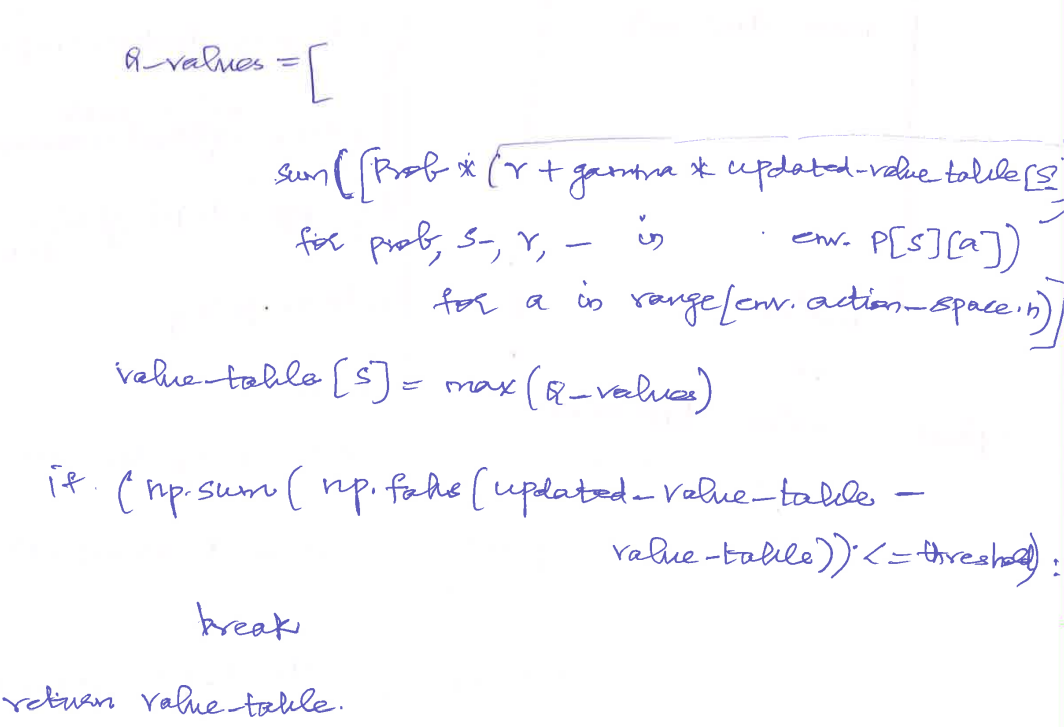 Q_values = [
sum([Prob * (r + gamma * updated_value table[s
for prob, s_, r, _ in env. P[s][a])
for a in range[env. action_space.n)]
value_table [s] = max(Q_values)
if (np.sum( np.fabs(updated_value_table -
value_table)) <= threshold) :
break
return value_table.